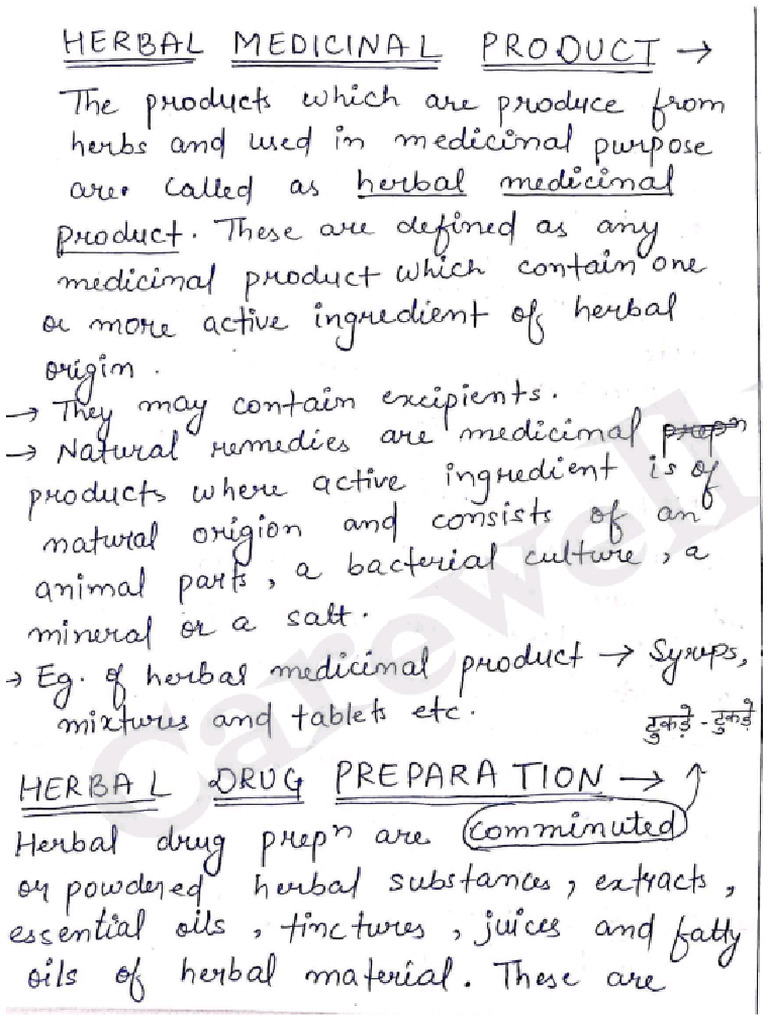 HERBAL MEDICINAL PRODUCT →
The products which are produce from
herbs and used in medicinal purpose
are. called as herbal medicinal
product. These are defined as any
medicinal product which contain one
or more active ingredient of herbal
origin.
→ They may contain excipients.
→ Natural remedies are medicinal prepn
products where active ingredient is of
natural origion and consists of an
animal parts, a bacterial culture, a
mineral or a salt.
→ Eg. of herbal medicimal product → Syrups,
mixtures and tablets etc.
टुकड़े - टुकड़े
HERBAL DRUG PREPARATION →
Herbal drug prepn are comminuted
or powdered herbal substances, extracts,
essential oils, tinctures, juices and fatty
oils of herbal material. These are
Carewell